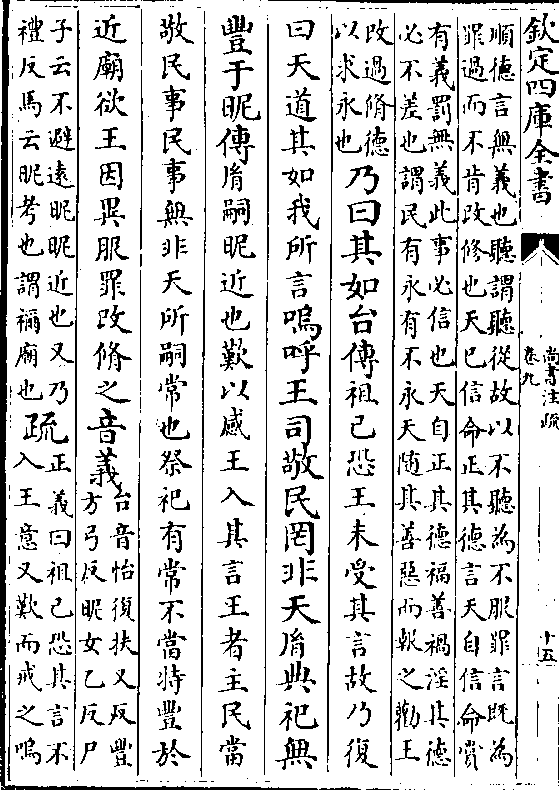 欽定四庫全書
尚書注疏
卷九
十五
順德言無義也聽謂聽從故以不聽為不服罪言既為
罪過而不肯改修也天已信命正其德言天自信命賞
有義罰無義此事必信也天自正其德福善禍淫其德
必不差也謂民有永有不永天隨其善惡而報之勸王
改過脩德
以求永也
乃曰其如台傳祖己恐王未受其言故乃復
曰天道其如我所言嗚呼王司敬民罔非天胤典祀無
豐于昵傳胤嗣昵近也歎以感王入其言王者主民當
敬民事民事無非天所嗣常也祭祀有常不當特豐於
近廟欲王因異服罪改脩之音義
台音怡復扶又反豐
方弓反昵女乙反尸
子云不避遠昵昵近也又乃
禮反馬云昵考也謂禰廟也
疏
正義曰祖己恐其言不
入王意又歎而戒之嗚